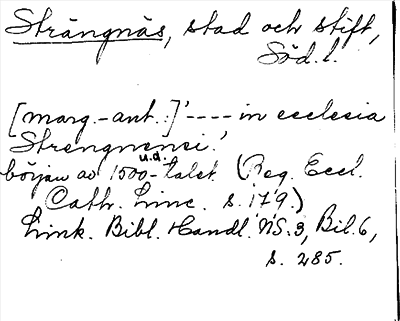 Strängnäs, stad och stift,
Söd.l.
[marg.-ant.:]'---- in ecclesia
Strengnensi.'
u.d.
början av 1500-talet. (Reg. Eccl.
Cath. Linc. s. 179.)
Link. Bibl. Handl. NS. 3, Bil. 6,
s. 285.